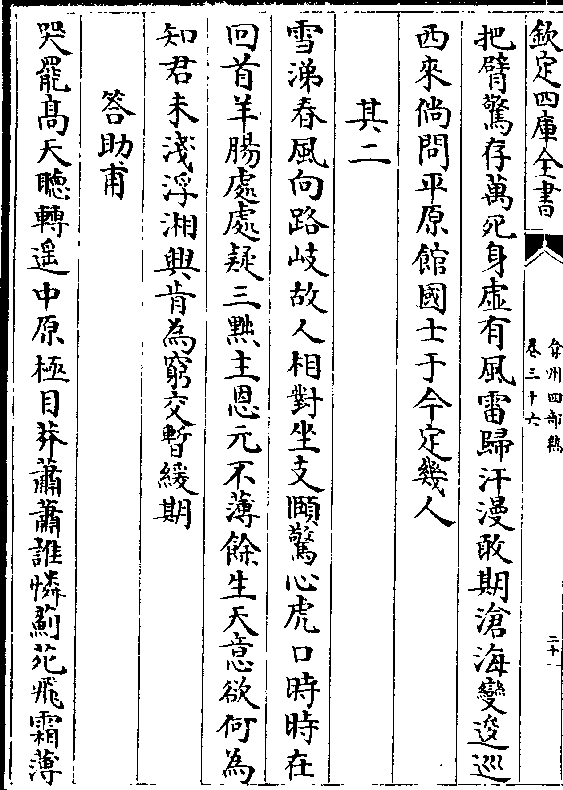 欽定四庫全書
弇州四部稿
卷三十六
二十一
把臂驚存萬死身虛有風雷歸汗漫敢期滄海變逡巡
西來倘問平原館國士于今定幾人
其二
雪涕春風向路岐故人相對坐支頤驚心虎口時時在
回首羊腸處處疑三黜主恩元不薄餘生天意欲何為
知君未淺浮湘興肯為窮交暫緩期
答助甫
哭罷高天聽轉遥中原極目莽蕭蕭誰憐薊苑飛霜薄